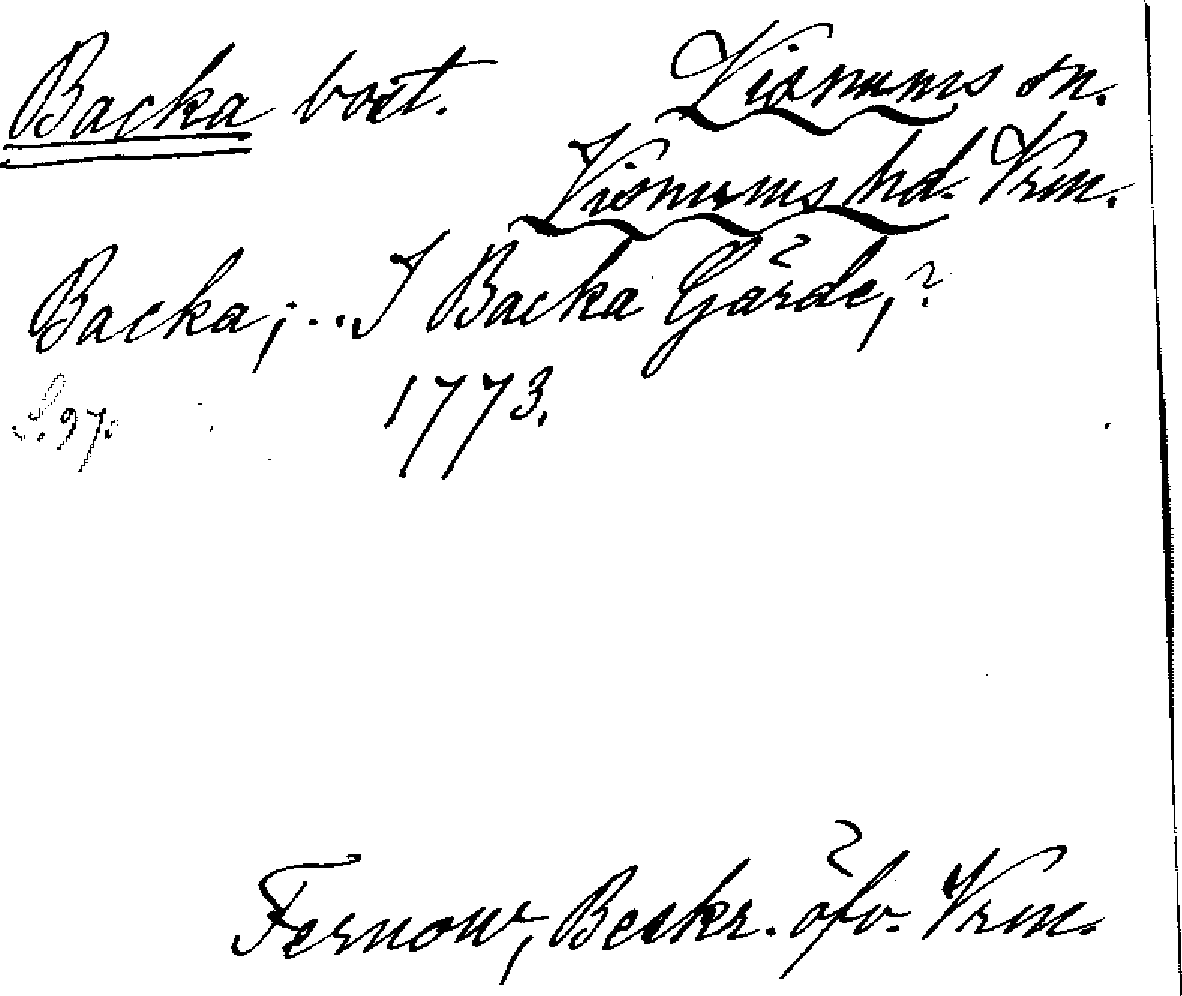 Backa bost. Visnums sn.
Visnums hd. Vrm.
Backa; .. I Backa Gärde, ?
S. 97. 1773.
Fernow, Beskr. öfv. Vrm.